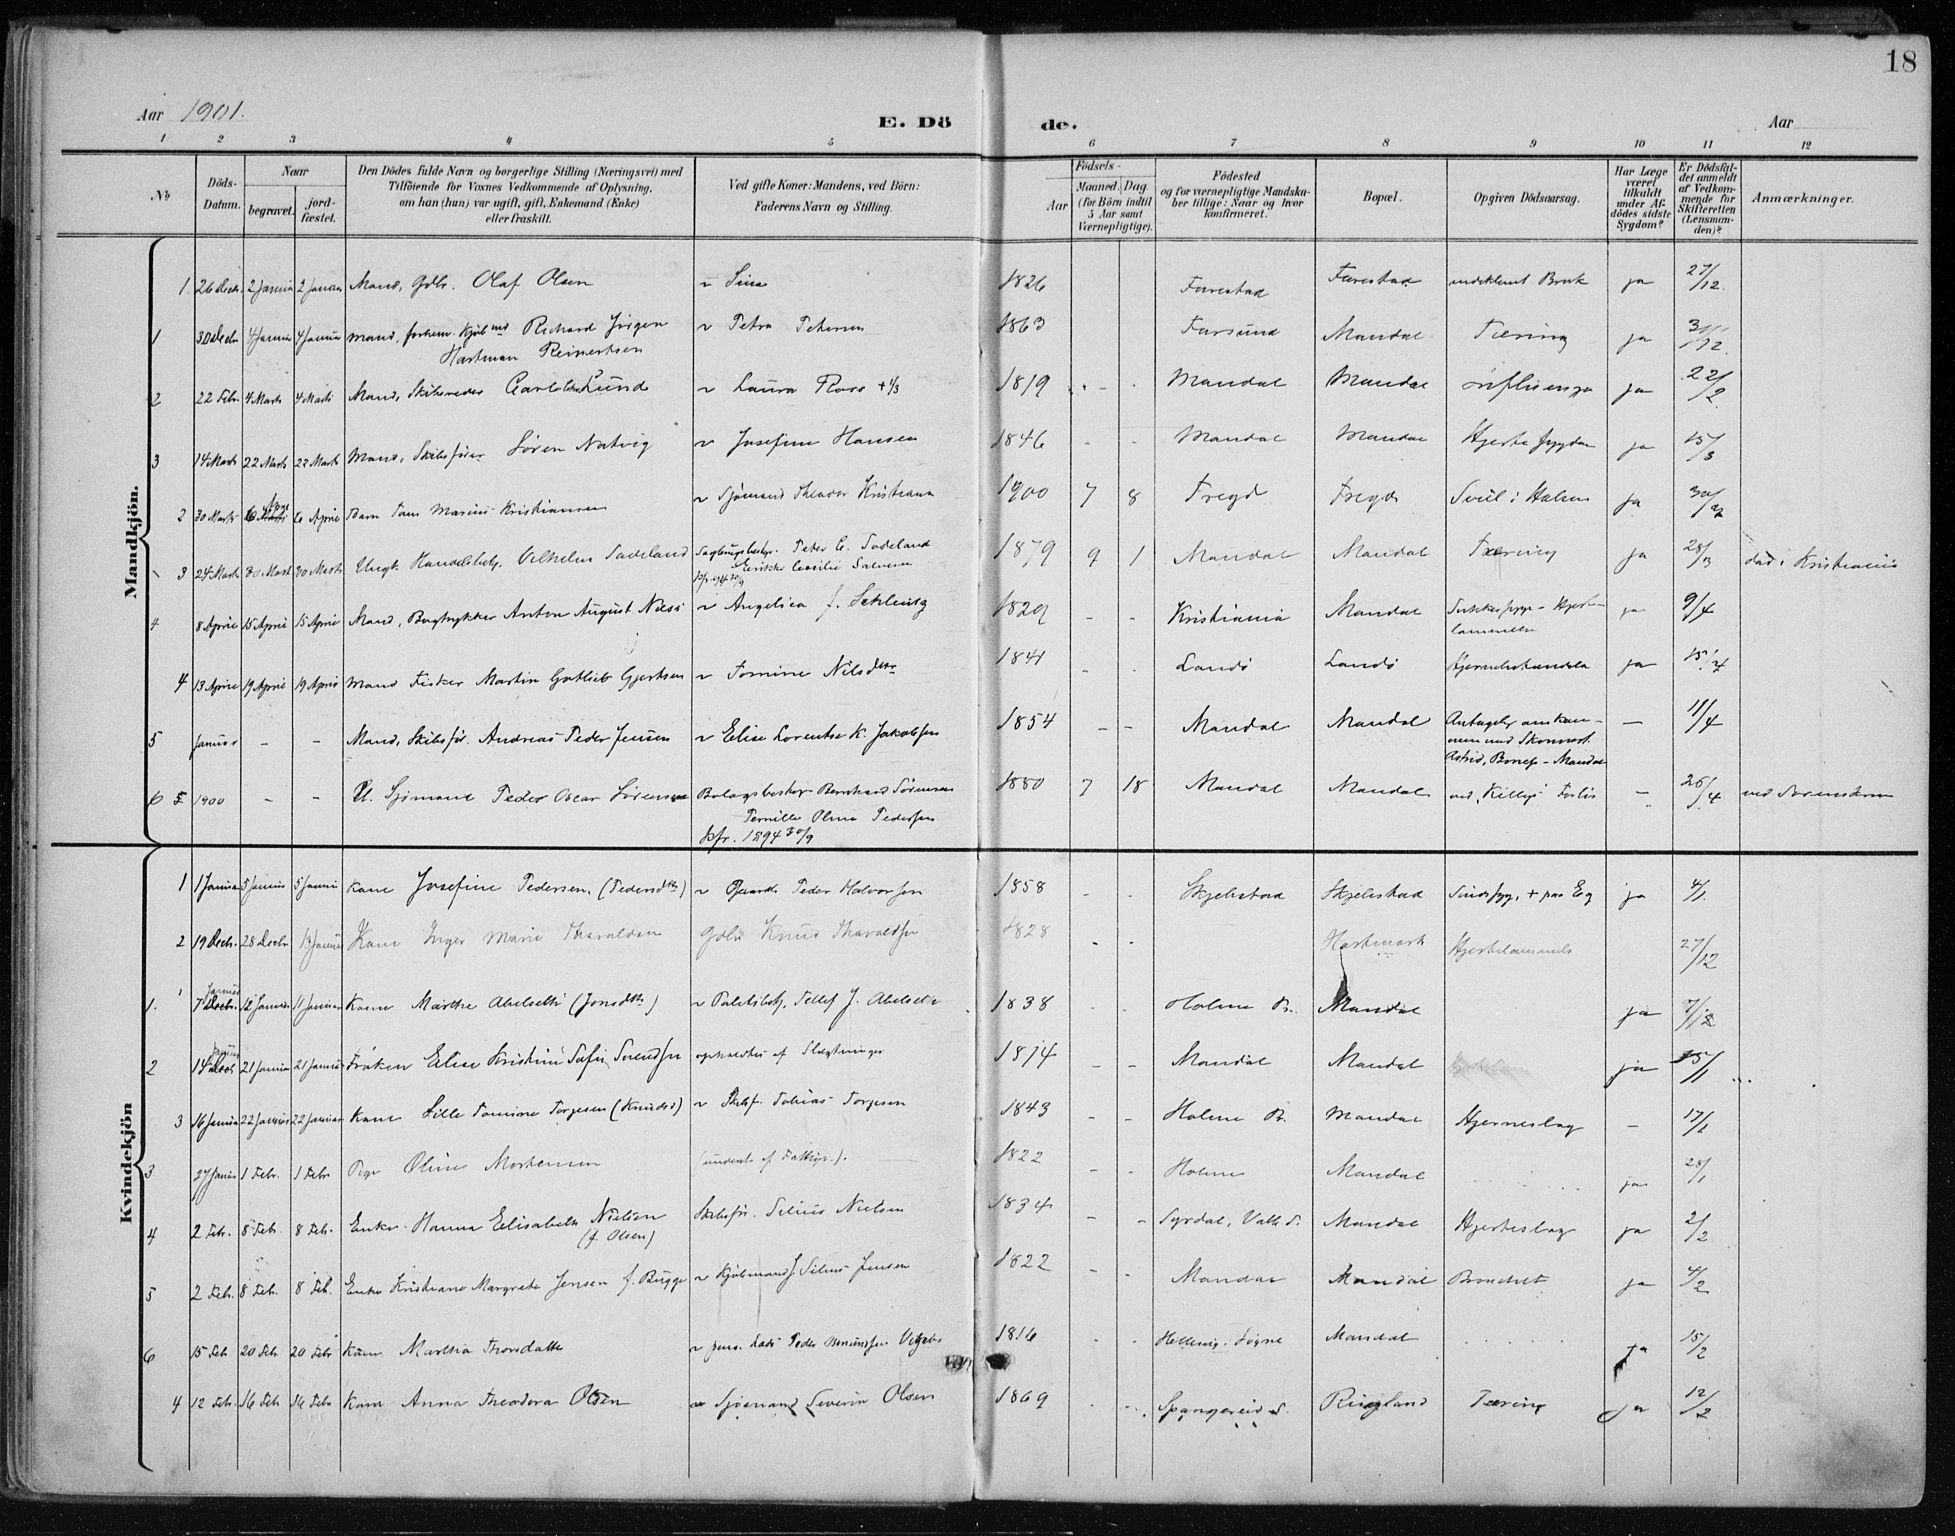 18
Aar 1901. E. Döde. Aar
1 2 3 4 5 6 7 8 9 10 11 12
No
Döds-Datum.
Naar
begravet.
jord-fæstet.
Den Dödes fulde Navn og borgerlige Stilling (Næringsvei) med
Tilföiende for Voxnes Vedkommende af Oplysning,
om han (hun) var ugift, gift, Enkemand (Enke)
eller fraskilt.
Ved gifte Koner: Mandens, ved Börn:
Faderens Navn og Stilling.
Födsels-
Aar
Maaned. Dag
(for Börn indtil
5 Aar samt
Værnepligtige).
Födested
og for værnepligtige Mandska-
ber tillige: Naar og hvor
konfirmeret.
Bopæl.
Opgiven Dödsaarsag.
Har Læge
været
tilkaldt
under Af-
dödes sidste
Sygdom?
Er Dödsfal-
det anmeldt
af Vedkom-
mende for
Skifteretten
(Lensman-
den)?
Anmærkninger.
Mandkjön.
1. 26 Decb. 2 Januar 2 Januar Mand, Gdbr. Olaf Olsen ~ Sina 1826 Farestad Farestad indeklemt Brok ja 27/12.
1 30 Decbr 4 Januar 4 Januar Mand, Richard Jørgen ~ Petra Petersen 1863 Farsund Mandal Tæring ja 31/12.
Hartman Reinertsen
2 22 Febr. 4 Marts 4 Marts Mand, Skibsreder Lund ~ Laura 1819 Mandal Mandal influensa ja 22/2.
3 14 Marts 22 Marts 22 Marts Mand, Skibsfører Søren Natvig ~ Josefine Hansen 1846 - - Mandal Mandal Hjertesygdom ja 15/3
2 30 Marts 6 April 6 April Barn Marius Kristiansen ~ Sjømand Theodor Kristiansen 1900 7 8 Fregd Fregd i Halsen ja 30/3
3 24 Marts 30 Marts 30 Marts Ungk. Vilhelm Sodeland Peder C. Sodeland 1879 9 1 Mandal Mandal Tæring ja 28/3 død i Kristiania
4 8 April 15 April 15 April Mand, Bogtrykker Anton August Niels ~ Angelica f. 1820 - - Kristiania Mandal Sukkersyge - Hjerte- ja 9/4
lammelse
4 13 April 19 April 19 April Mand Fisker Martin Gotlieb Gjertsen ~ Tomine Nilsdtr 1841 - - Landø Landø ja 15/4
5 Januar - - Mand, Skibsfør. Andreas Peder Jensen ~ Elise Lorentse K. Jakobsen 1854 - - Mandal Mandal Antagelig omkom- - 11/4
men med Skonnert
Astrid, - Mandal
6 5 1900 - - U. Sjømand Peder Oscar Sørensen Bernhard Sørensen 1880 7 18 Mandal Mandal Forlis - 26/4
Pernille Olina Pedersen
Kfr. 1894 30/9
Kvindekjön
1 1 Januar 5 Januar 5 Januar Kone Josefine Pedersen (Pedersdtr) ~ Gaardb. Peder Halvorsen 1858 - - Skjebstad Skjebstad Sindssyg, + paa Eg ja 4/1.
2 19 Decb. 28 Decbr 13 Januar Kone Inger Marie Tharaldsen Gdbr Knud Tharaldsen 1828 - - Hartmark Hjertelammelse 27/12
1. 7 Januar 12 Januar 11 Januar Kone Marthe Abelseth (Jonsdtr) ~ Tellef J. Abelseth 1838 Holme P. Mandal ja 7/1
2 14 Januar 21 Januar 21 Januar Frøken Elise Kristine Sofie Svendsen af Slægtninger 1874 - - Mandal Mandal ja 15/1
3 16 Januar 22 Januar 22 Januar Kone Sille Tomine Torjesen (Knudsd) ~ Skibsf. Tobias Torjesen 1843 - - Holme P. Mandal Hjerneslag - 17/1
3 27 Januar 1 Febr. 1 Febr Pige Oline Mortensen (underst af Fattigv.). 1822 - - Holme Mandal ja 28/1
4 2 Febr. 8 Febr. 8 Febr. Enke Hanna Elisabeth Nielsen Skibsfør. Silius Nielsen 1834 - - Syrdal, Valle S. Mandal Hjerteslag ja 2/2
(f. Olsen)
5 2 Febr. 8 Febr. 8 Feb. Enke Kristiane Margrete Jensen f. Bugge ~ Kjøbmand Silius Jensen 1822 - - Mandal Mandal Bronchit ja 4/2
6 15 Feb 20 Feb 20 Febr Kone Martha Thorsdatter ~ Peder 1816 Søgne Mandal ja 15/2
4 12 Feb. 16 Feb 16 Febr Kone Anna Theodora Olsen ~ Sjømand Severin Olsen 1869 Spangereid S. Ringland Tæring ja 12/2